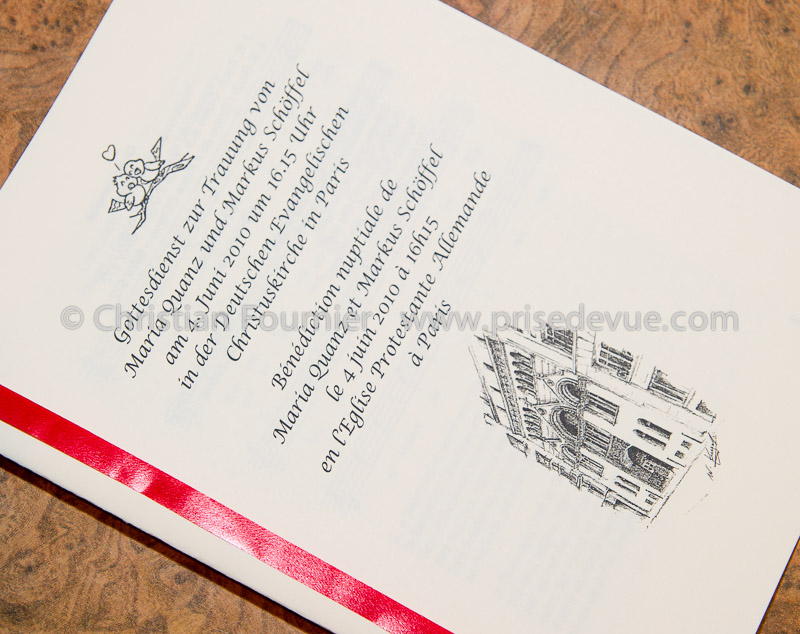 Gottesdienst zur Trauung von
Maria Quanz und Markus Schöffel
am 4. Juni 2010 um 16.15 Uhr
in der Deutschen Evangelischen
Christuskirche in Paris
Bénédiction nuptiale de
Maria Quanz et Markus Schöffel
le 4 juin 2010 à 16h15
en l'Eglise Protestante Allemande
à Paris
© Christian Fournier - www.prisedevue.com